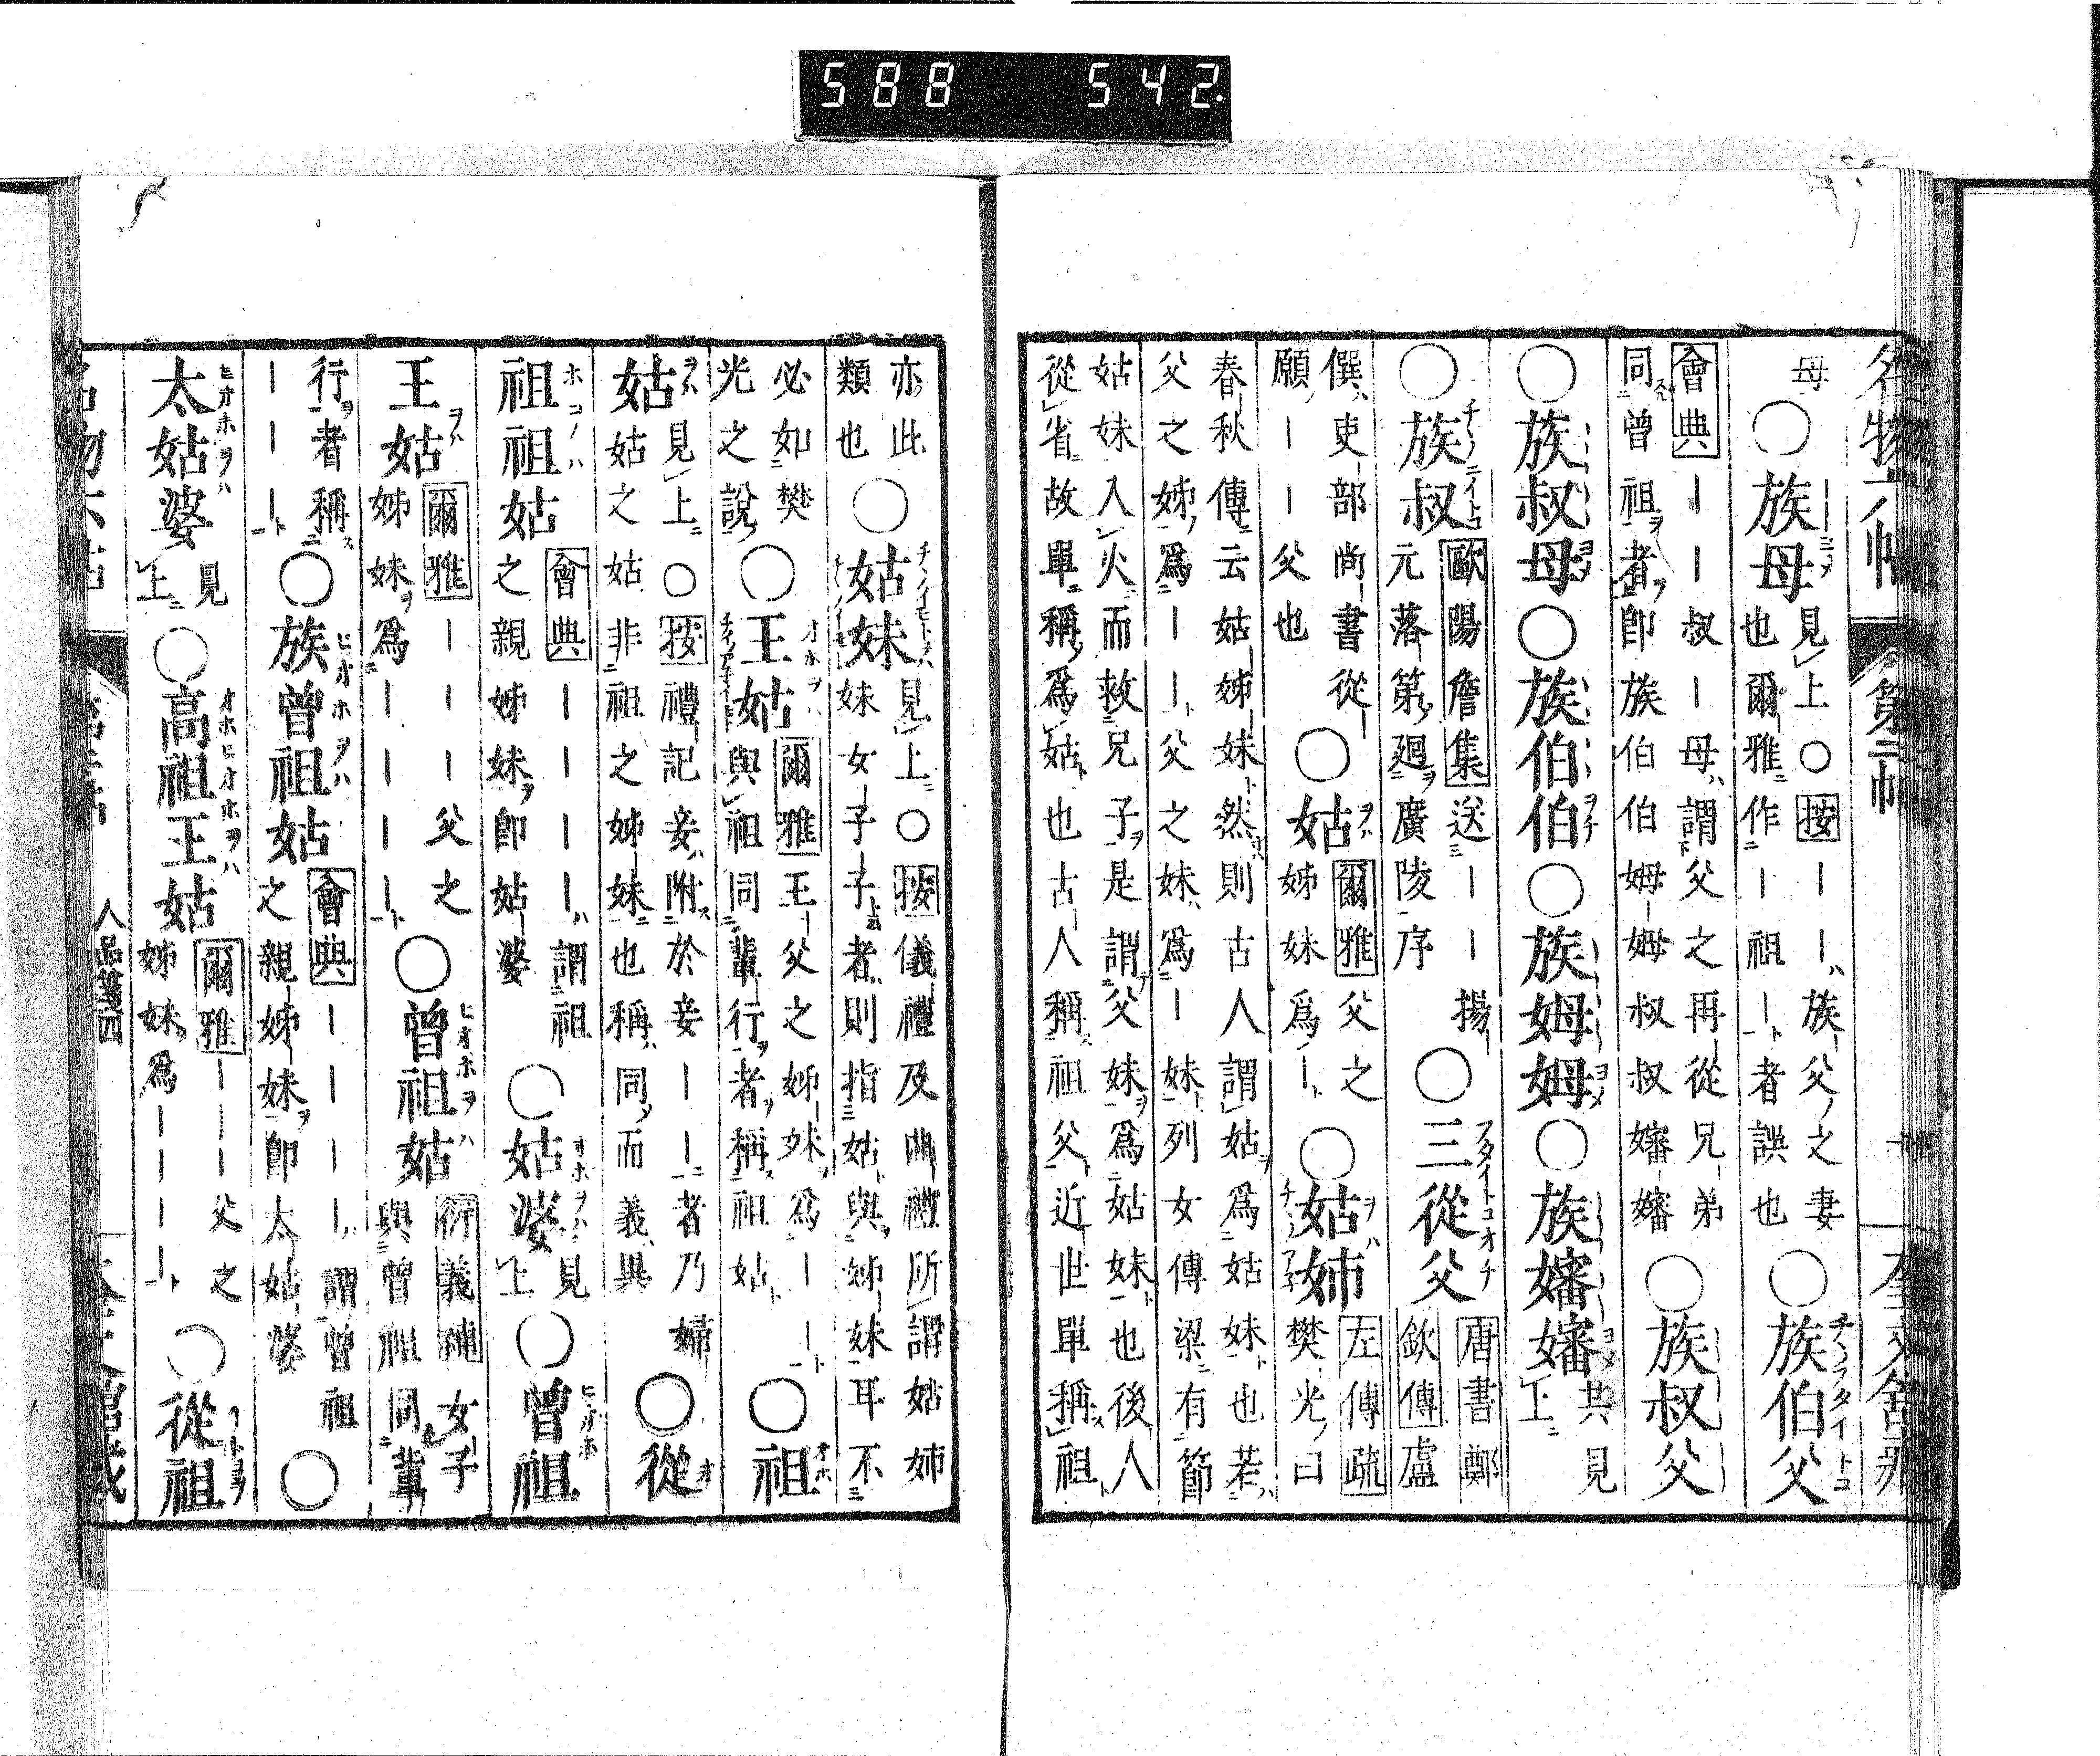 588 542.
名物六帖 第二帖
母 ○族母 見上○按||族父之妻也爾雅作|祖|者誤也 ○族伯父
會典||叔|母謂父之再從兄弟同曾祖者即族伯伯姆姆叔叔嬸嬸 ○族叔父
○族叔母 ○族伯伯 ○族姆姆 ○族嬸嬸 共見上
○族叔 歐陽詹集送||揚元落第廻廣陵序 ○三從父 唐書鄭欽傳盧
僎吏部尚書從願||父也 ○姑 爾雅父之姊妹為| ○姑姉 左傳疏樊光曰
春秋傳云姑姊妹然則古人謂姑為姑妹也若父之姊為||父之妹為|妹列女傳梁有節
姑妹入火而救兄子是謂父妹為姑妹也後人從省故單稱為姑也古人稱祖父近世單稱祖
亦此類也 ○姑妹 見上○按儀禮及曲禮所謂姑姉妹女子子者則指姑與姉妹耳不
必如樊光之說 ○王姑 爾雅王父之姊妹為||與祖同輩行者稱祖姑 ○祖
姑 見上○按禮記妾附於妾||者乃婦姑之姑非祖之姊妹也稱同而義異 ○從
祖祖姑 會典||||謂祖之親姊妹即姑婆 ○姑婆 見上 ○曾祖
王姑 爾雅|||父之姊妹為|||| ○曾祖姑 衍義補女子與曾祖同輩
行者稱||| ○族曾祖姑 會典||||謂曾祖之親姊妹即太姑婆 ○
太姑婆 見上 ○高祖王姑 爾雅|||父之姊妹為|||| ○從祖
人品箋四